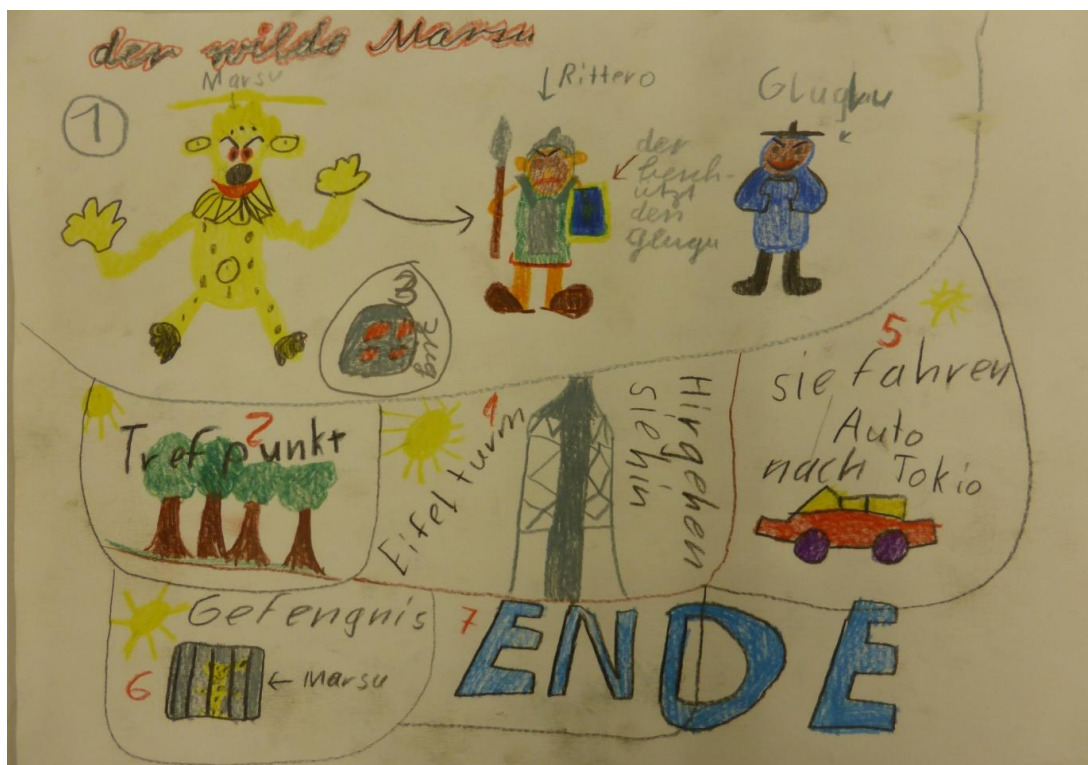 der wilde Marsu
Marsu
1
Rittero
der
besch-
utzt
den
Glugu
3
zug
2
Trefpunkt
4
Eifelturm
Hirgehen
siehin
5
sie fahren
Auto
nach Tokio
Gefengnis
6
← Marsu
7
ENDE